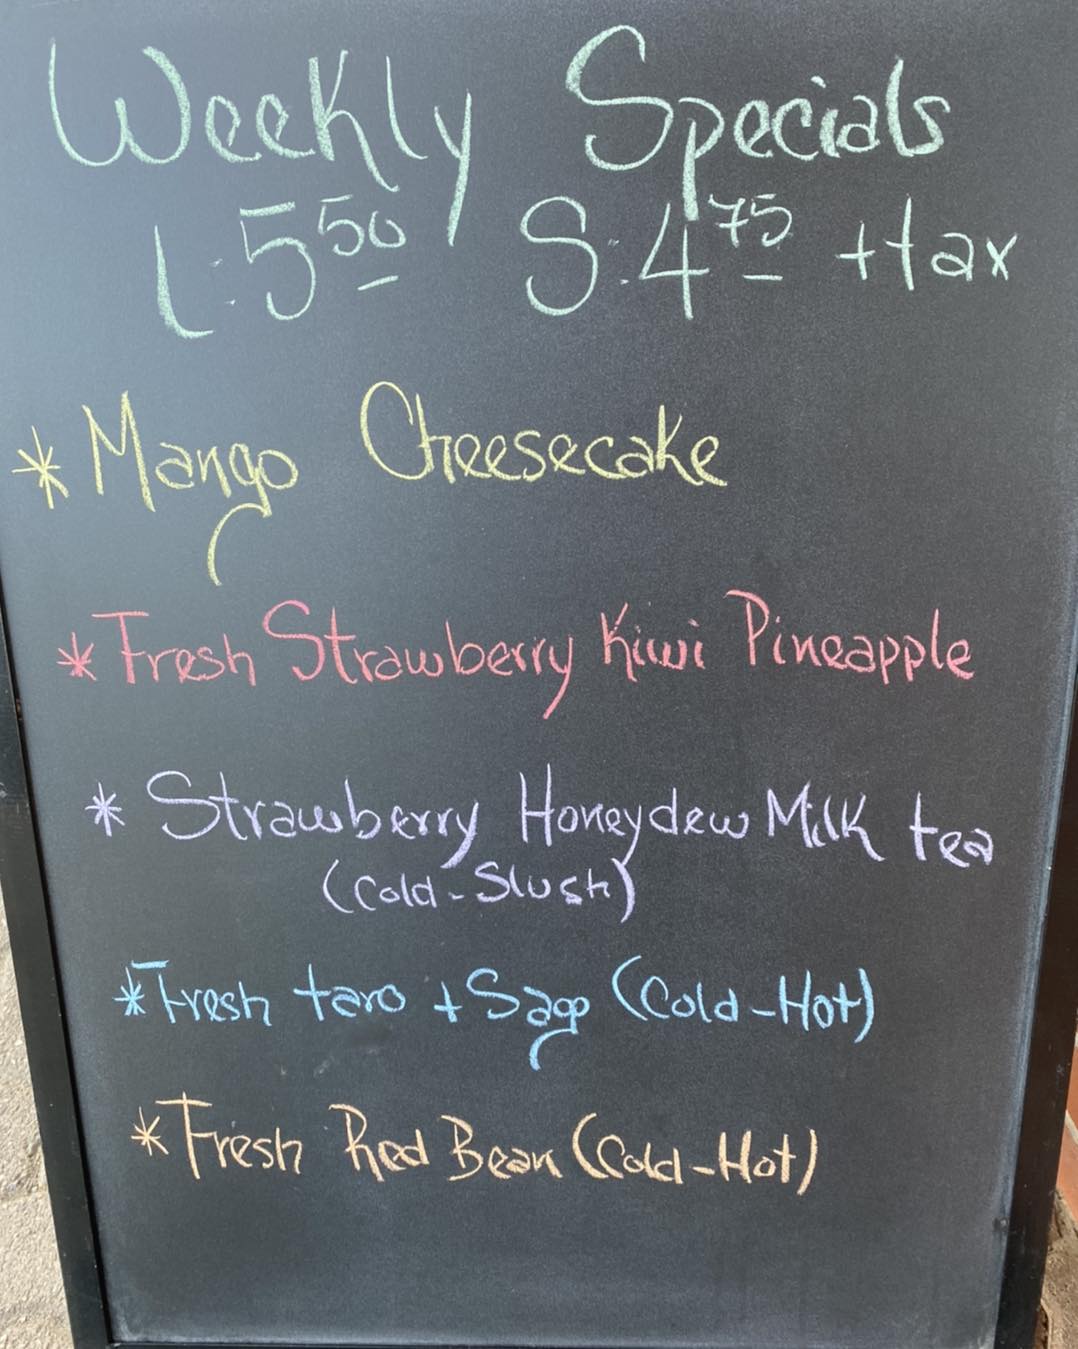 Weekly Specials
L:5 50 S:4 75 +tax
* Mango Cheesecake
* Fresh Strawberry Kiwi Pineapple
* Strawberry Honeydew Milk tea
(Cold-Slush)
* Fresh taro + Sago (Cold-Hot)
* Fresh Red Bean (Cold-Hot)